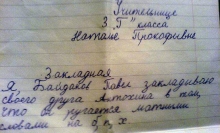 Учительнице
3 "Г" класса
Наташе Прокофивне
Закладная
Я Байдаков Павел закладываю
своего друга Антохина в том,
что он ругается матными
словами на б, п, х